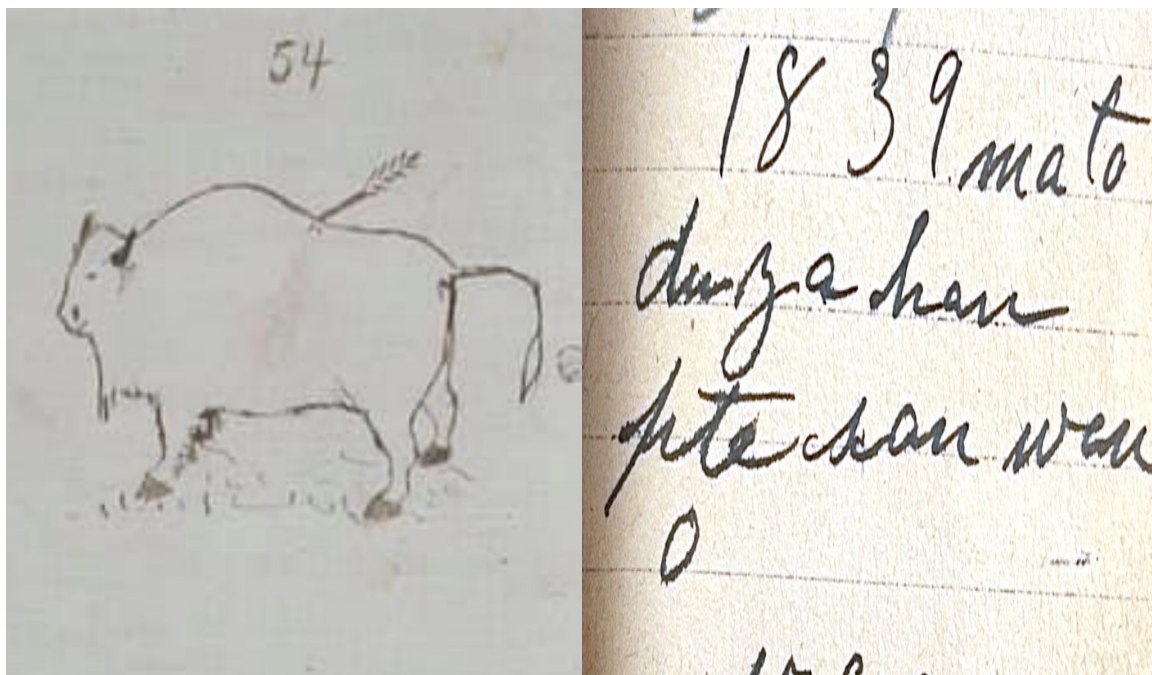 54
1839 mato
duzahan
pte san wen
o